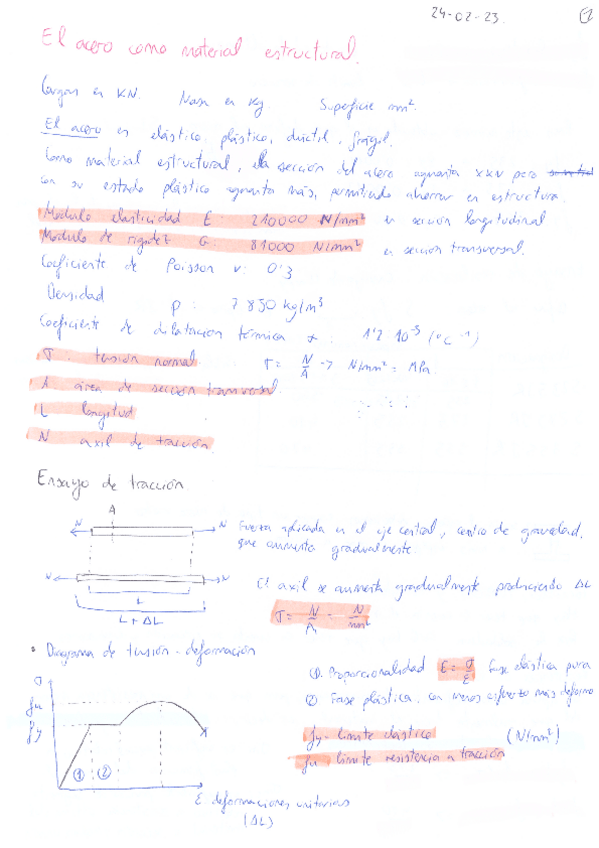 24-02-23.
El acero como material estructural.
Cargas en KN. Masa en Kg. Superficie mm².
El acero es elástico, plástico, dúctil, frágil.
Como material estructural, la sección del acero aumenta xxv pero
con su estado plástico aumenta más, permitiendo ahorrar en estructura.
Módulo elasticidad E: 210000 N/mm² en sección longitudinal
Módulo de rigidez G: 81000 N/mm² en sección transversal.
Coeficiente de Poisson v: 0'3
Densidad ρ: 7850 kg/m³
Coeficiente de dilatación térmica α: 1'2·10⁻⁵ (°C⁻¹)
σ tensión normal. σ = N/A → N/mm² = MPa.
A área de sección transversal.
L longitud
N axil de tracción.
Ensayo de tracción
A
N N Fuerza aplicada en el eje central, centro de gravedad,
que aumenta gradualmente.
N N El axil se aumenta gradualmente produciendo ΔL
L
L + ΔL
σ = N/A = N/mm²
• Diagrama de tensión-deformación
① Proporcionalidad E = σ/ε fase elástica pura
② Fase plástica, con menos esfuerzo más deformo
σ
fu
fy
fy- límite elástico (N/mm²)
fu- límite resistencia a tracción
① ②
ε deformaciones unitarias
(ΔL)